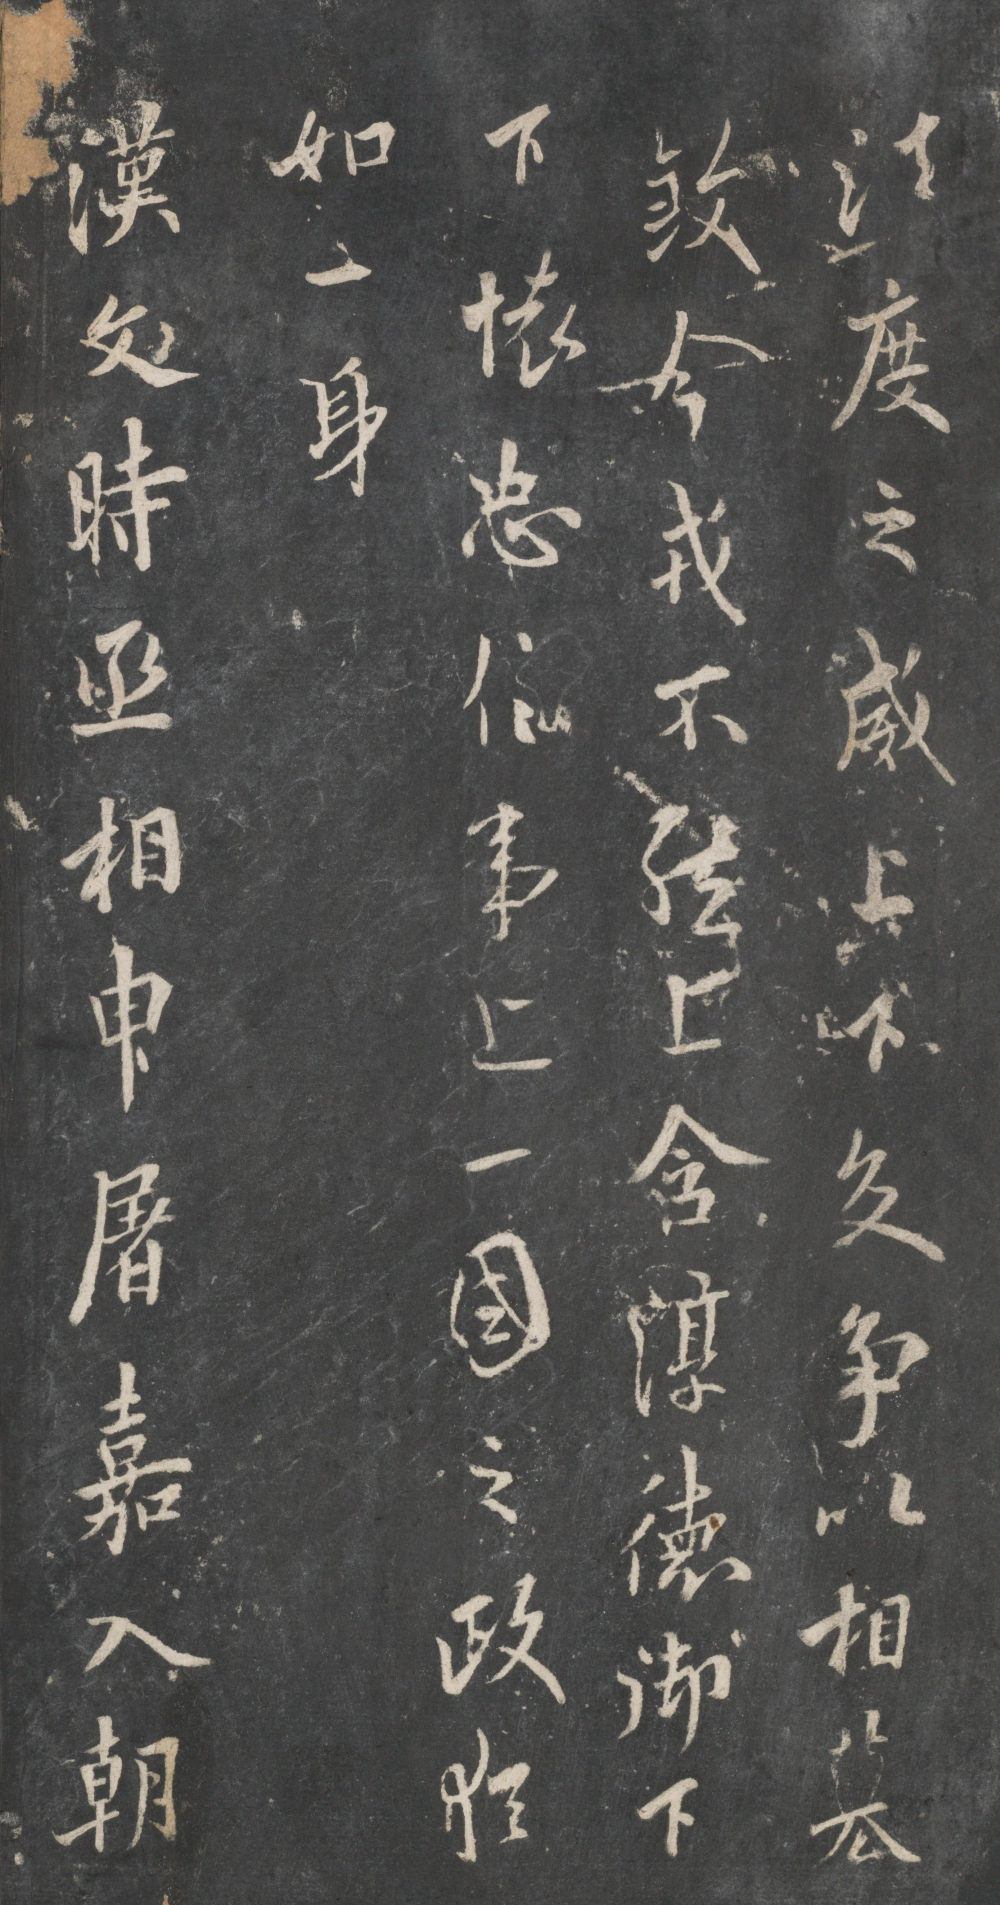 法度之威上下交争以相篡
殺今戎不然上含淳德御下
下懷忠信事上一國之政猶
如一身
漢文時丞相申屠嘉入朝